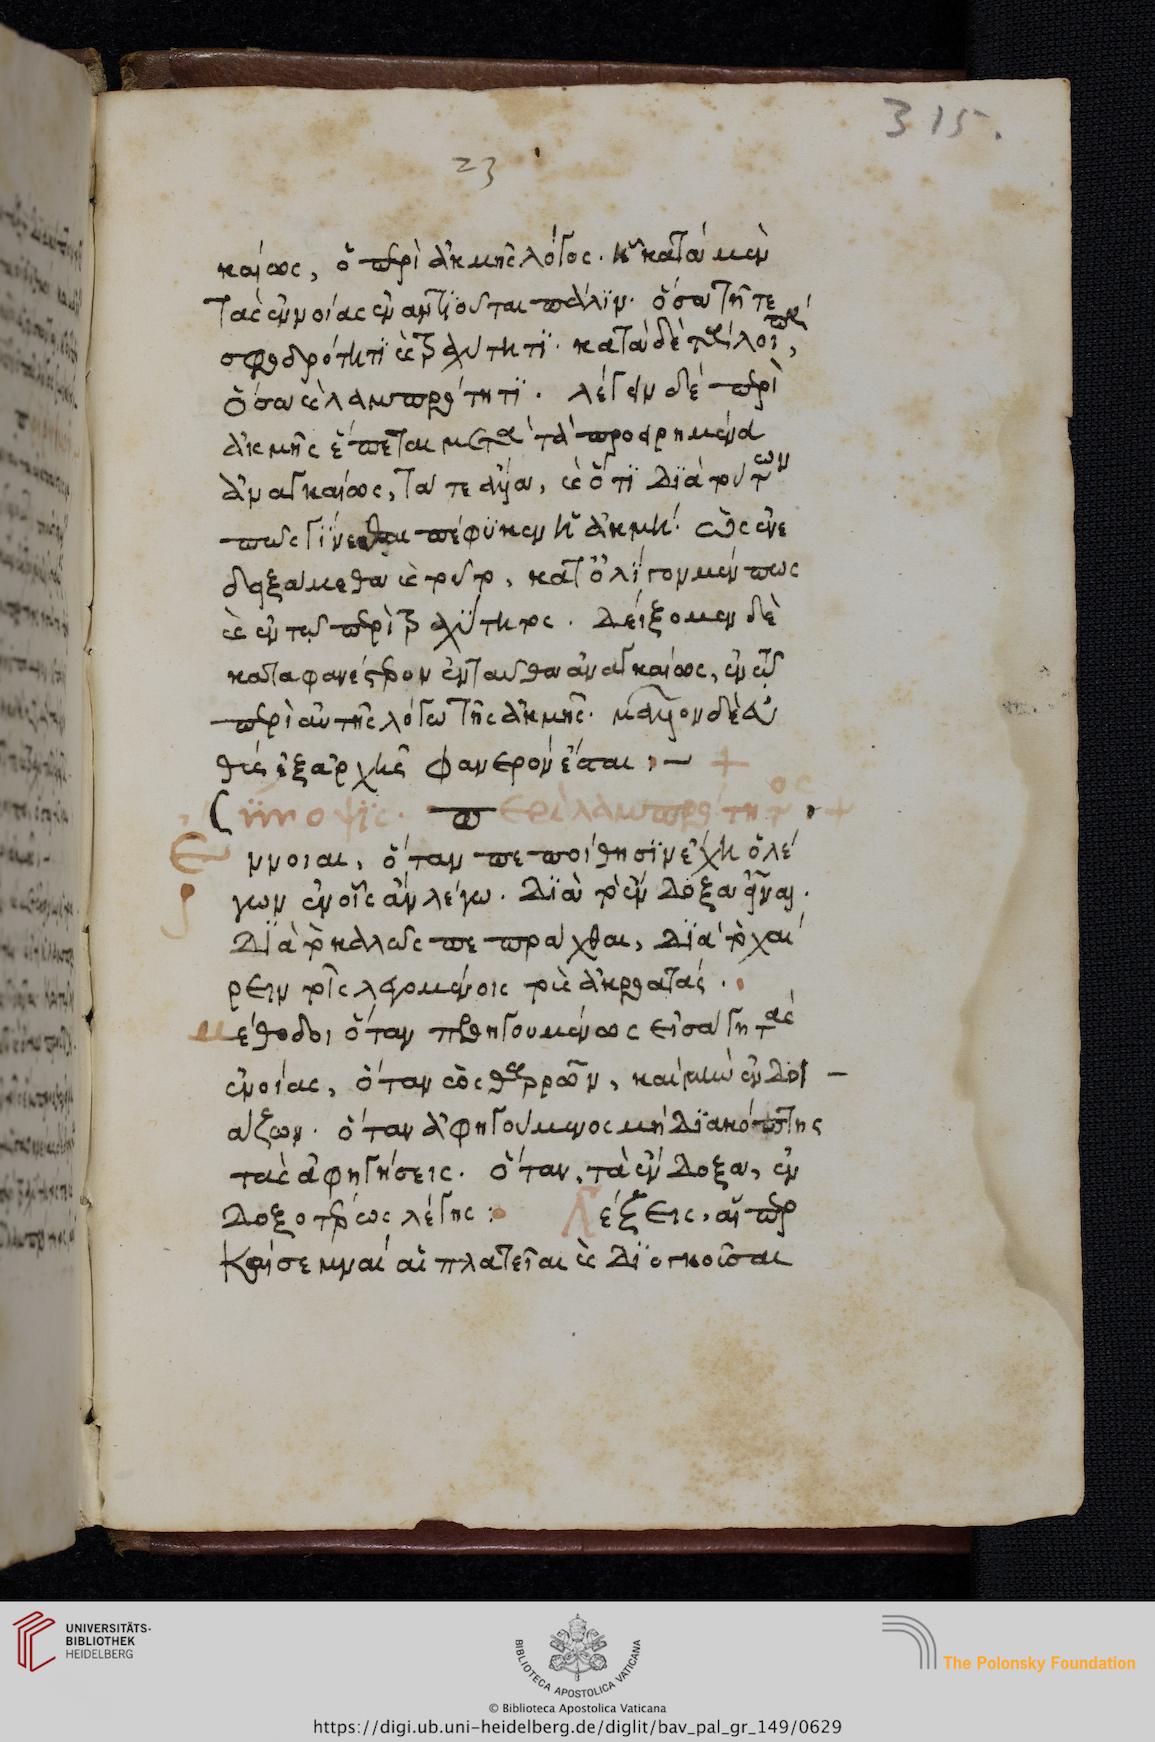 315.
23
καίως, ὁ περὶ ἀκμῆς λόγος. ἣ κατὰ μὲν
τὰς ἐννοίας ἐναντιοῦται πάλιν. ὅσα γῆ τε
σφοδρότητι καὶ τραχύτητι. κατὰ δὲ τὰ λοιπὰ,
ὅσα καὶ λαμπρότητι. λέγειν δὲ περὶ
ἀκμῆς ἕπεται μετὰ τὰ προειρημένα
ἀναγκαίως, τά τε ἄλλα, καὶ ὅτι διὰ τούτων
πως γίνεσθαι πέφυκεν ἡ ἀκμή. ὡς ἐνε
δειξάμεθα καὶ τοῦτο, κατ' ὀλίγον μέν πως
καὶ ἐν τῷ περὶ τραχύτητος. δείξομεν δὲ
καταφανέστερον ἐνταῦθα ἀναγκαίως, ἐν τῷ
περὶ αὐτῆς λόγω τῆς ἀκμῆς. μᾶλλον δὲ αὖ
θις ἐξ ἀρχῆς φανερὸν ἔσται :— +
Σύνοψις. περὶ λαμπρότητος, +
Ἔννοιαι, ὅταν πεποίθησιν ἔχη ὁ λέ
γων ἐν οἷς ἂν λέγω. διὰ τὸ ἔνδοξα εἶναι.
διὰ τὸ καλῶς πεπράχθαι, διὰ τὸ χαί
ρειν τοῖς λεγομένοις τοὺς ἀκροατάς.
μέθοδοι ὅταν προηγουμένως εἰσάγη τὰς
ἐννοίας, ὅταν ὡς θαρρῶν, καὶ μὴ ἐνδοι—
άζων. ὅταν ἀφηγούμενος μὴ διακόπτης
τὰς ἀφηγήσεις. ὅταν, τὰ ἔνδοξα, ἐν
δοξοτέρως λέγης : Λέξεις, αἵπερ
καὶ σεμναὶ αἱ πλατεῖαι καὶ διογκοῦσαι
UNIVERSITÄTS-
BIBLIOTHEK
HEIDELBERG
BIBLIOTECA APOSTOLICA VATICANA
© Biblioteca Apostolica Vaticana
The Polonsky Foundation
https://digi.ub.uni-heidelberg.de/diglit/bav_pal_gr_149/0629